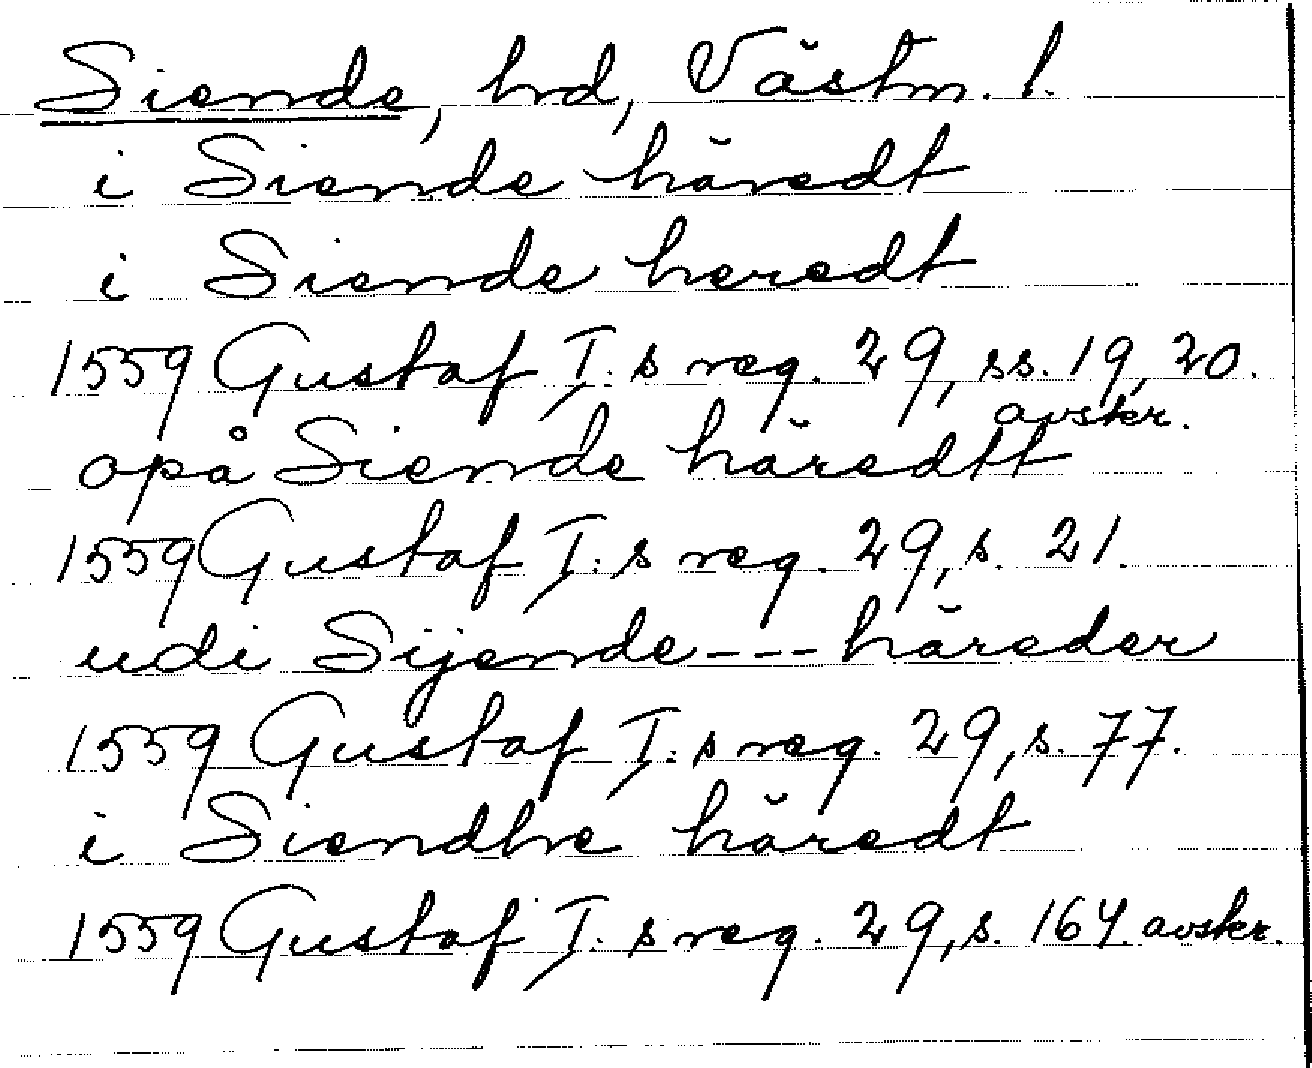 Siende, hrd, Västm. l.
i Siende häredt
i Siende heredt
1559 Gustaf I:s reg. 29, ss. 19, 20.
avskr.
opå Siende häredtt
1559 Gustaf I:s reg. 29, s. 21.
udi Sijende --- häreder
1559 Gustaf I:s reg. 29, s. 77.
i Siendhe häredt
1559 Gustaf I:s reg. 29, s. 164 avskr.